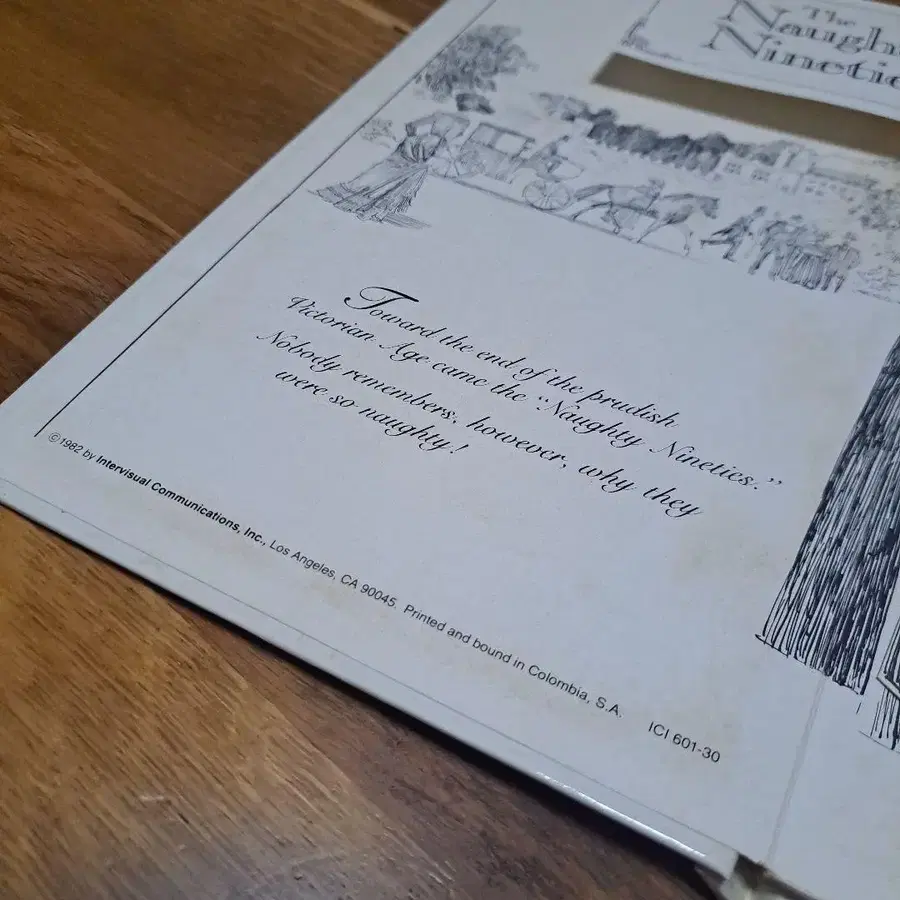 The
Naugh
Ninetie
Toward the end of the prudish
Victorian Age came the “Naughty Nineties.”
Nobody remembers, however, why they
were so naughty!
©1982 by Intervisual Communications, Inc., Los Angeles, CA 90045. Printed and bound in Colombia, S.A. ICI 601-30